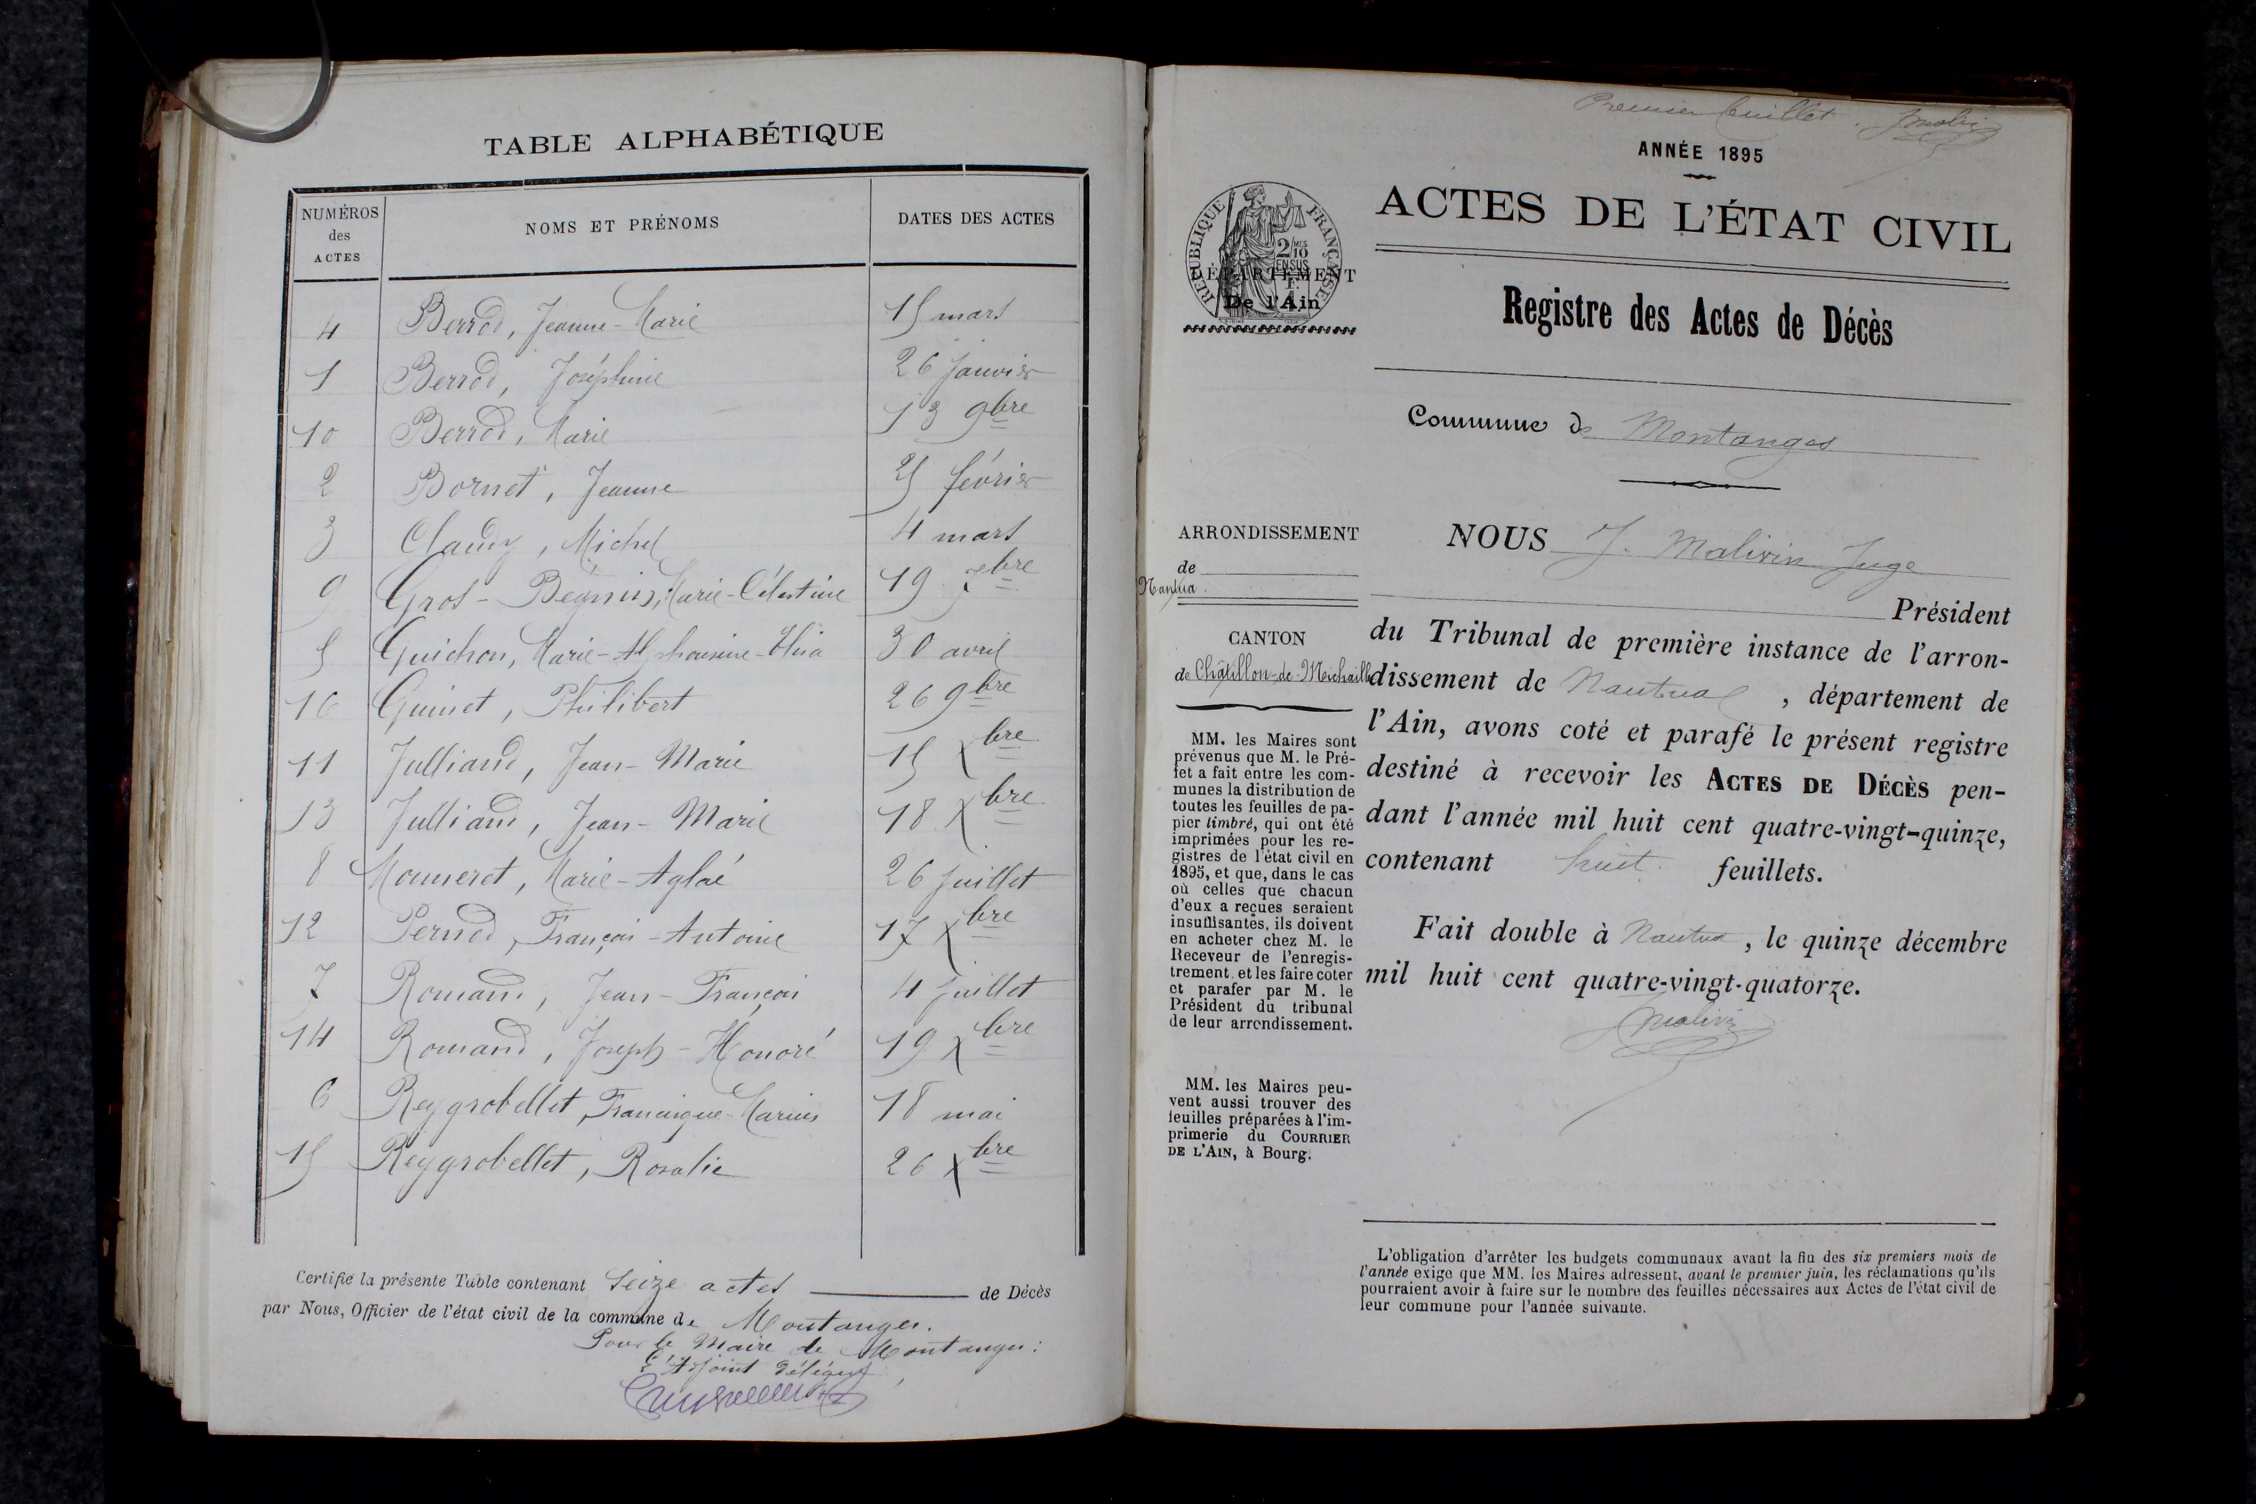 TABLE ALPHABÉTIQUE
NUMÉROS des ACTES NOMS ET PRÉNOMS DATES DES ACTES
4 Berrod, Jeanne-Marie 15 mars
1 Berrod, Joséphine 26 janvier
10 Berrod, Marie 13 9bre
2 Bornet, Jeanne 25 février
3 Claudy, Michel 4 mars
9 Gros-Béginin, Marie-Célestine 19 7bre
5 Guichon, Marie-Alphonsine- 30 avril
16 Guinet, Philibert 26 9bre
11 Julliand, Jean-Marie 15 Xbre
13 Julliand, Jean-Marie 18 Xbre
8 Mouneret, Marie-Aglaé 26 juillet
12 Pernod, François-Antoine 17 Xbre
7 Romand, Jean-François 4 juillet
14 Romand, Joseph-Honoré 19 Xbre
6 Reygrobellet, Francisque-Marius 18 mai
15 Reygrobellet, Rosalie 26 Xbre
Certifie la présente Table contenant Seize actes de Décès
par Nous, Officier de l'état civil de la commune de Montanges.
Pour le Maire de Montanges :
L'Adjoint délégué
Premier feuillet. JMalivin
ANNÉE 1895
ACTES DE L'ÉTAT CIVIL
RÉPUBLIQUE FRANÇAISE
2/10 MES
EN SUS
DÉPARTEMENT
De l'Ain
Registre des Actes de Décès
Commune de Montanges
ARRONDISSEMENT
de
Nantua
CANTON
de Châtillon-de-Michaille
MM. les Maires sont
prévenus que M. le Pré-
fet a fait entre les com-
munes la distribution de
toutes les feuilles de pa-
pier timbré, qui ont été
imprimées pour les re-
gistres de l'état civil en
1895, et que, dans le cas
où celles que chacun
d'eux a reçues seraient
insuffisantes, ils doivent
en acheter chez M. le
Receveur de l'enregis-
trement et les faire coter
et parafer par M. le
Président du tribunal
de leur arrondissement.
MM. les Maires peu-
vent aussi trouver des
feuilles préparées à l'im-
primerie du COURRIER
DE L'AIN, à Bourg.
NOUS J. Malivin Juge
Président
du Tribunal de première instance de l'arron-
dissement de Nantua, département de
l'Ain, avons coté et parafé le présent registre
destiné à recevoir les ACTES DE DÉCÈS pen-
dant l'année mil huit cent quatre-vingt-quinze,
contenant huit feuillets.
Fait double à Nantua, le quinze décembre
mil huit cent quatre-vingt-quatorze.
JMalivin
L'obligation d'arrêter les budgets communaux avant la fin des six premiers mois de
l'année exige que MM. les Maires adressent, avant le premier juin, les réclamations qu'ils
pourraient avoir à faire sur le nombre des feuilles nécessaires aux Actes de l'état civil de
leur commune pour l'année suivante.